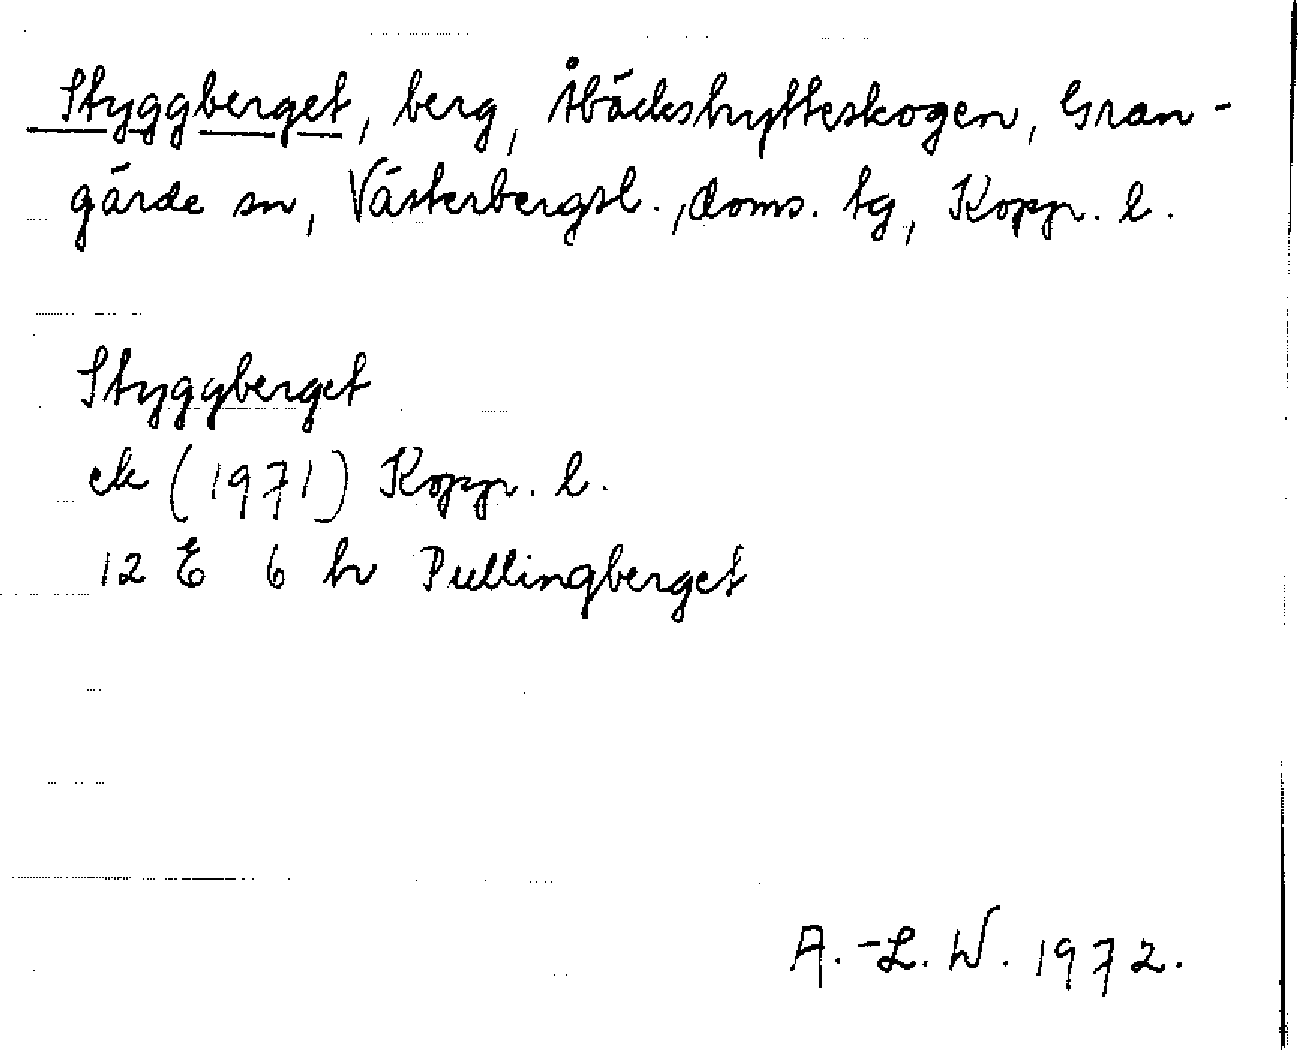 Styggberget, berg, Åbäckshytteskogen, Gran-
gärde sn, Västerbergsl., doms. tg, Kopp. l.
Styggberget
ek (1971) Kopp. l.
12 E 6 h Pullingberget
A.-L. W. 1972.